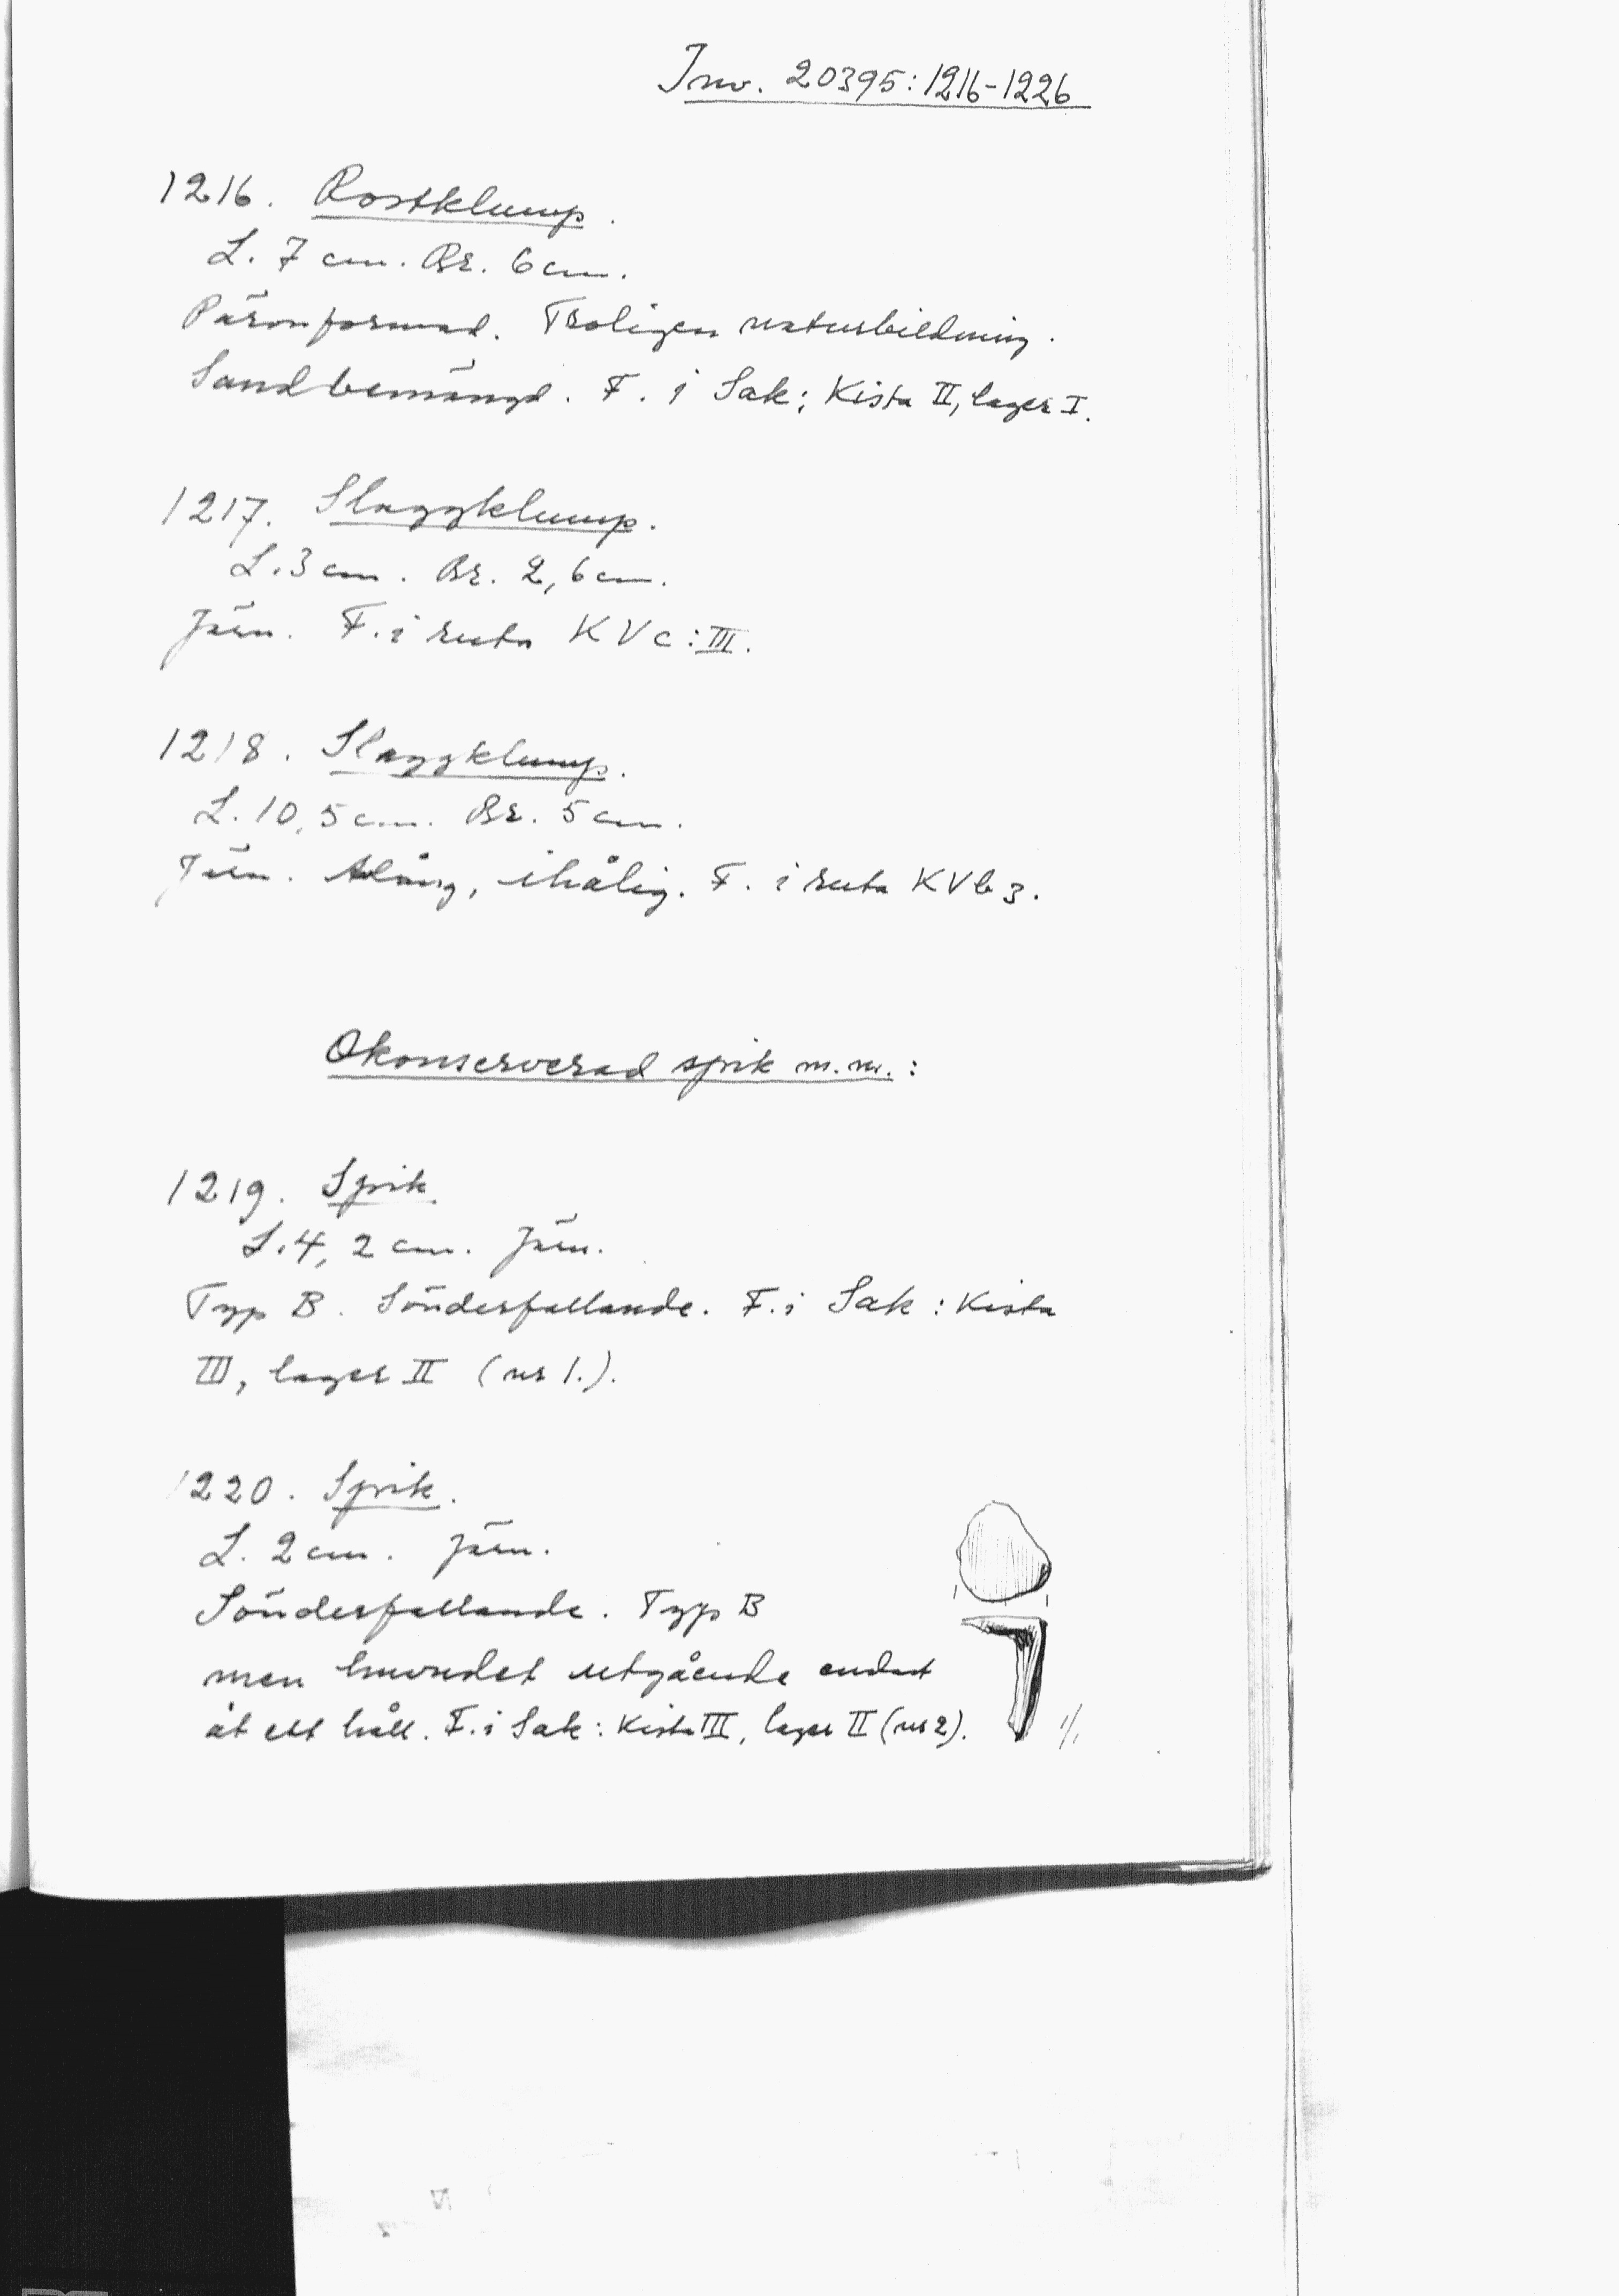 Inv. 20395:1216-1226
1216. Rostklump.
L. 7 cm. Br. 6 cm.
Päronformad. Troligen naturbildning.
Sandbemängd. F. i Sak; Kista II, lager I.
1217. Slaggklump.
L. 3 cm. Br. 2,6 cm.
Järn. F. i ruta KVc:III.
1218. Slaggklump.
L. 10,5 cm. Br. 5 cm.
Järn. Avlång, ihålig. F. i ruta KVb3.
Okonserverad spik m.m.:
1219. Spik.
L. 4,2 cm. Järn.
Typ B. Sönderfallande. F. i Sak: Kista
III, lager II (nr 1.).
1220. Spik.
L. 2 cm. Järn.
Sönderfallande. Typ B
men huvudet utgående endast
åt ett håll. F. i Sak: Kista III, lager II (nr 2).
1/1